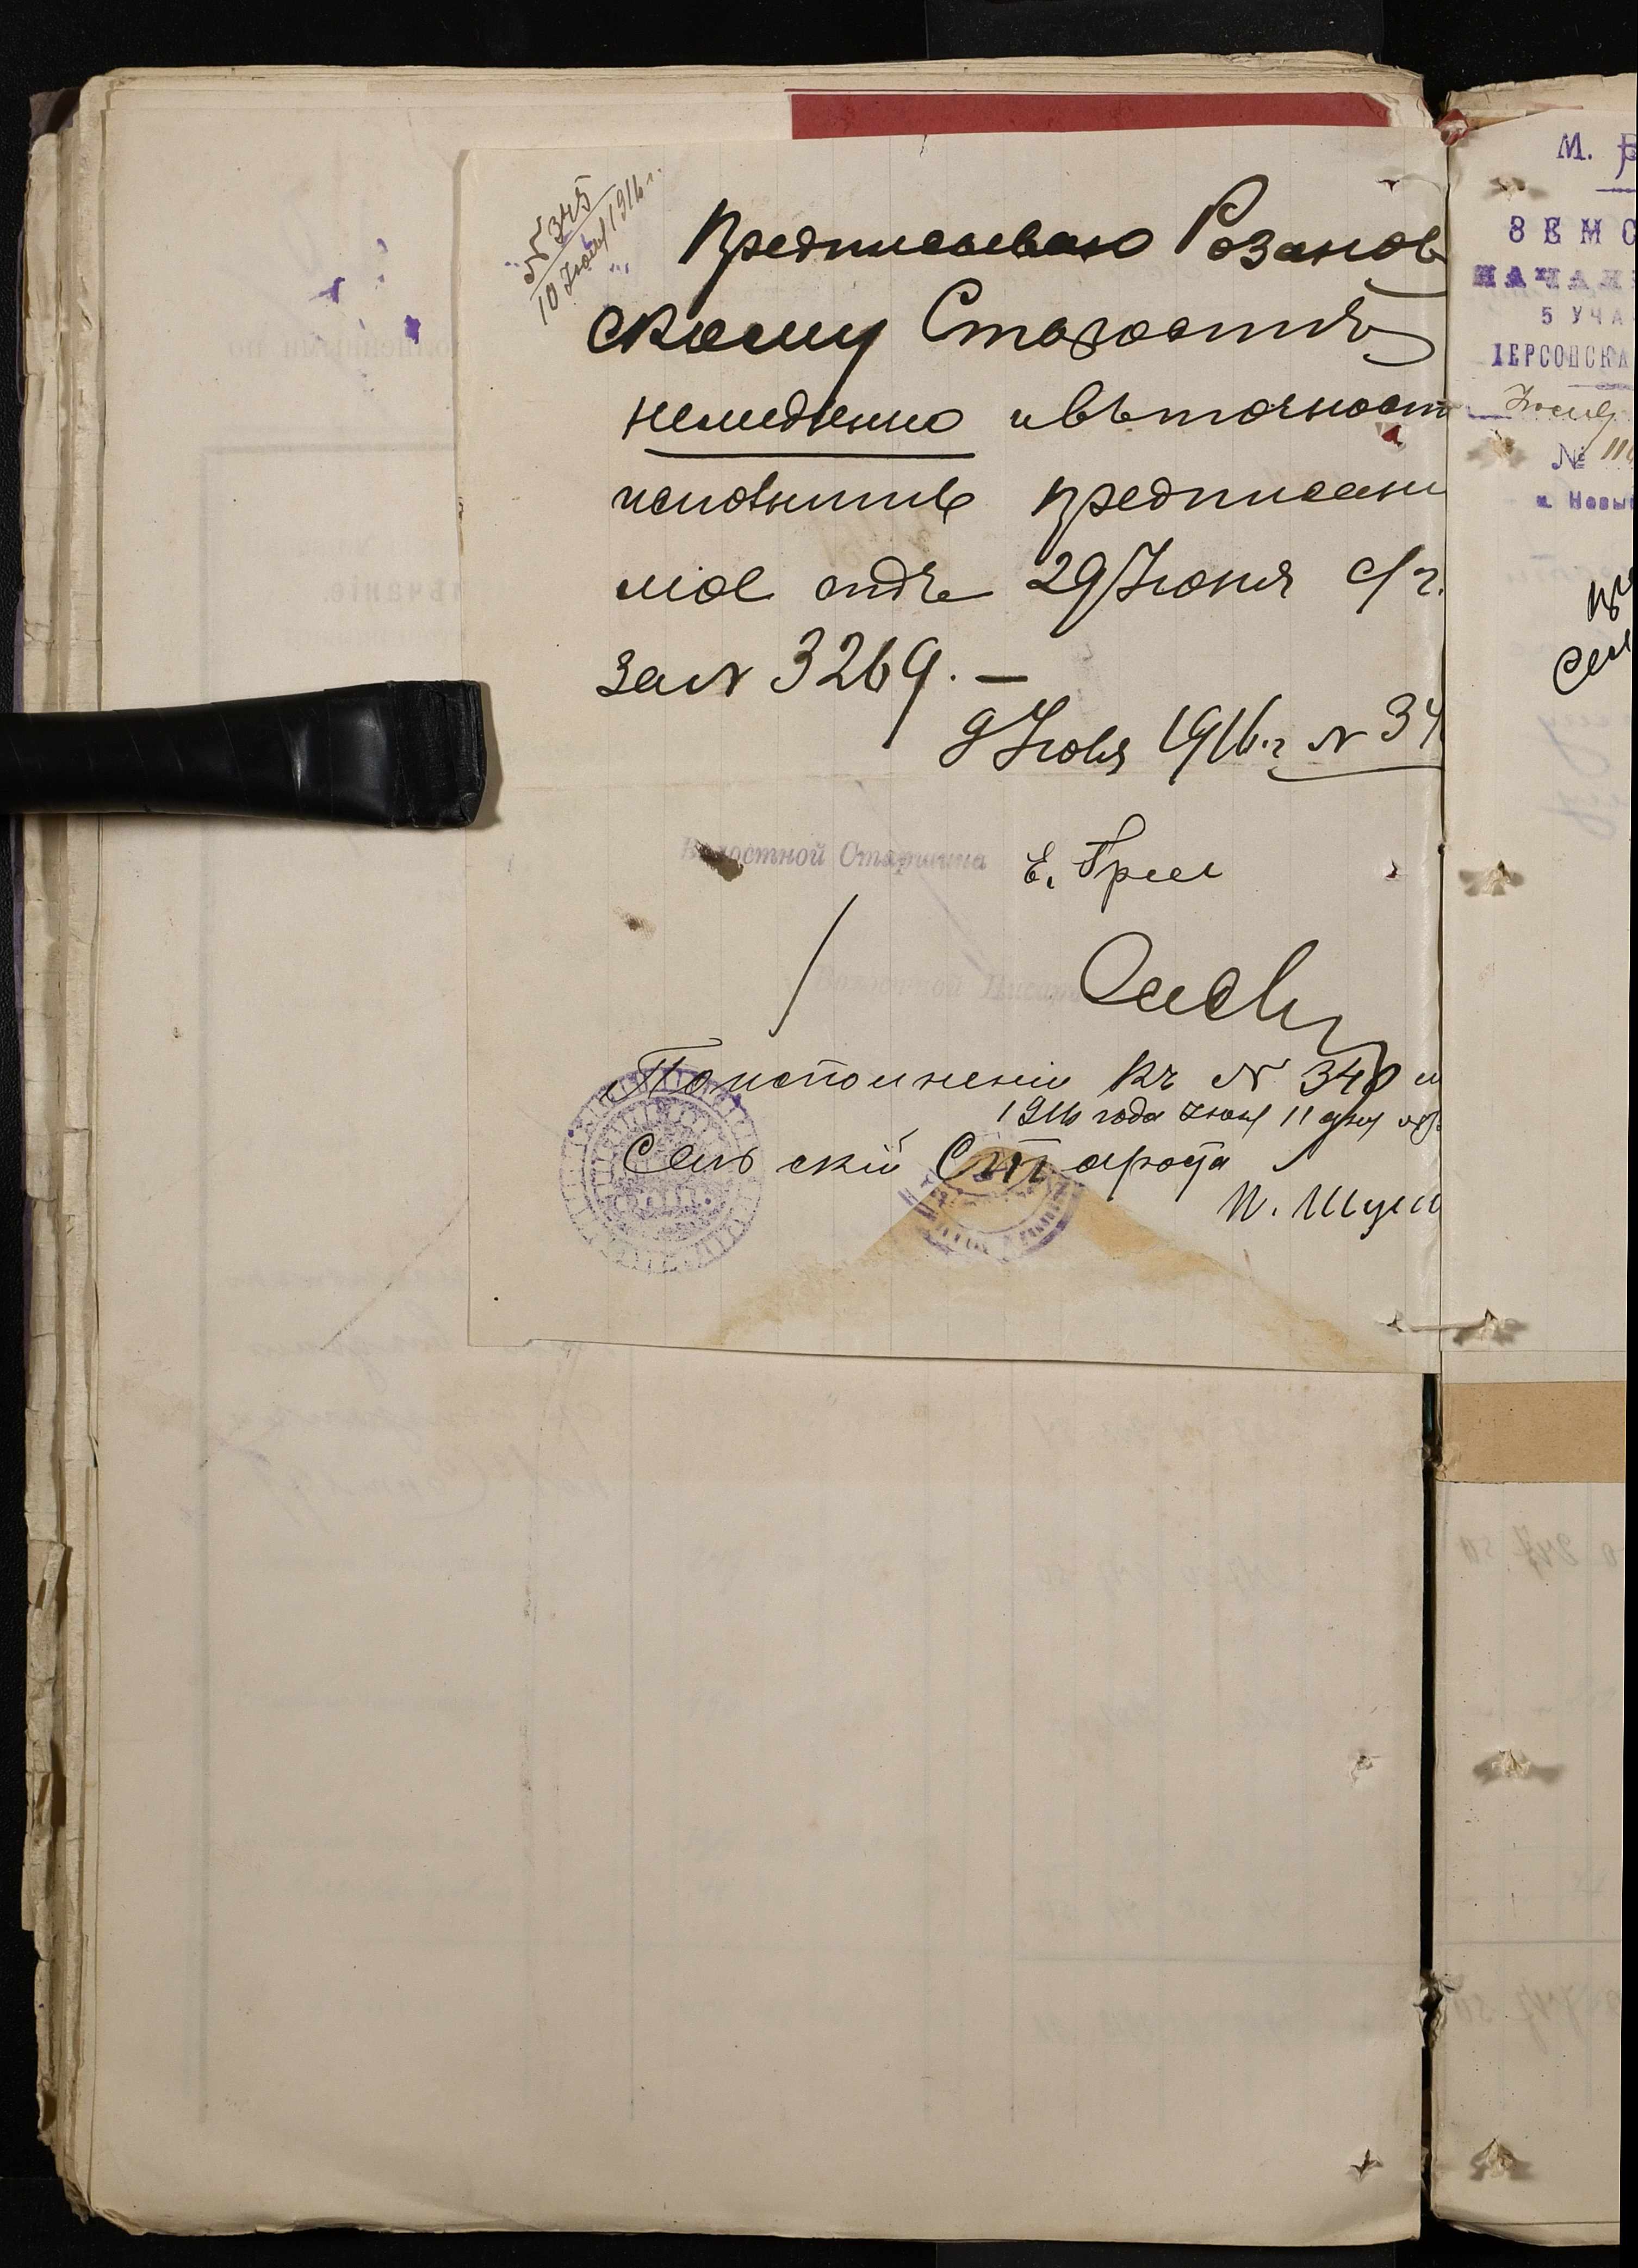 № 345
10 Июля 1916 г.
Предписываю Розанов
скому Старостѣ
немедленно и въ точност
исполнить предписани
мое отъ 29 Июня с/г.
за № 3269. —
9 Июля 1916 г. № 34
Волостной Старшина
Волостной Писар
По исполнении къ № 340
1916 года Июля 11 дня
Сельский Староста
М.
ЗЕМС
НАЧАЛ
5 УЧА
ХЕРСОНСКА
№ 11
Новы